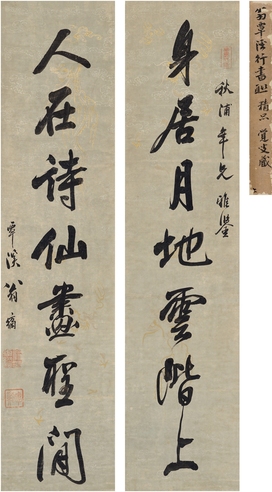 翁覃溪行書聯 精品 宜受藏
秋浦年兄雅鑒
身居月地雲階上
人在詩仙畫聖間
覃溪翁方綱